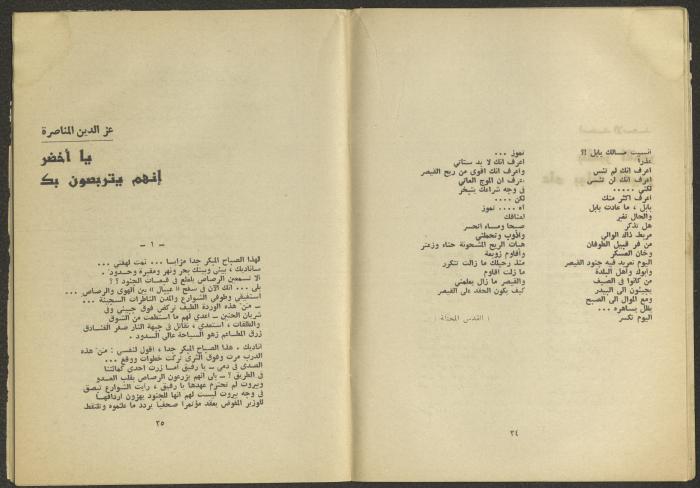 انسيت حالك بابل ؟!
عذرا
اعرف انك لم تنس
اعرف انك لن تنسى
لكني .....
اعرف اكثر منك
بابل ، ما عادت بابل
والحال تغير
هل تذكر
مربط ذاك الوالي
من فر قبيل الطوفان
وخان العسكر
اليوم تعربد فيه جنود القيصر
وابوك واهل البلدة
من كانوا في الصيف
يجيئون الى البيدر
ومع الموال الى الصبح
يظل بساهره ...
اليوم تكسر
تموز ...
اعرف انك لا بد ستأتي
واعرف انك اقوى من ريح القيصر
اعرف ان الموج العاتي
في وجه شراعك يتبخر
لكن ....
آه .... تموز
اشتاقك
صبحا ومساء اتحسر
واذوب وتحملني
هبات الريح المشحونة حناء وزعتر
وأقاوم زوبعة
منذ رحيلك ما زالت تتكرر
ما زلت اقاوم
والقيصر ما زال يعلمني
كيف يكون الحقد على القيصر
( القدس المحتلة )
٣٤
عز الدين المناصرة
يا أخضر
إنهم يتربصون بك
- ١ -
لهذا الصباح المبكر جدا مزايا ... تمت لهفتي ...
سأناديك ، بيني وبينك بحر ونهر ومقبرة وحدود .
الا تسمعين الرصاص يلعلع في قبعات الجنود ؟ ؟
بلى ... انك الآن في سفح « عيبال » بين الهوى والرصاص ...
استفيقي وطوفي الشوارع والمدن الناظرات السجينة ...
- من هذه الوردة الطيف تركض فوق جبيني وفي
شريان الحنين - اعدي لهم ما استطعت من الشوق
والطلقات ، استعدي ، نقاتل في جبهة النار صغر الفنادق
زرق المطاعم زهو السياحة عالي السدود .
أناديك . هذا الصباح المبكر جدا ، اقول لنفسي : من هذه
الدرب مرت وفوق الثرى تركت خطوات ووقع ...
الصدى في دمي - يا رفيق أما زرت احدى كمائننا
في الطريق ؟ - بلى انهم يزرعون الرصاص بقلب العدو
وبيروت لم تحترم عهدها يا رفيق ، رأيت الشوارع تبصق
في وجه بيروت ليست لهم انها للجنود يهزون اردافها
للوزير المفوض يعقد مؤتمرا صحفيا يردد ما علموه وتلتقط
٣٥